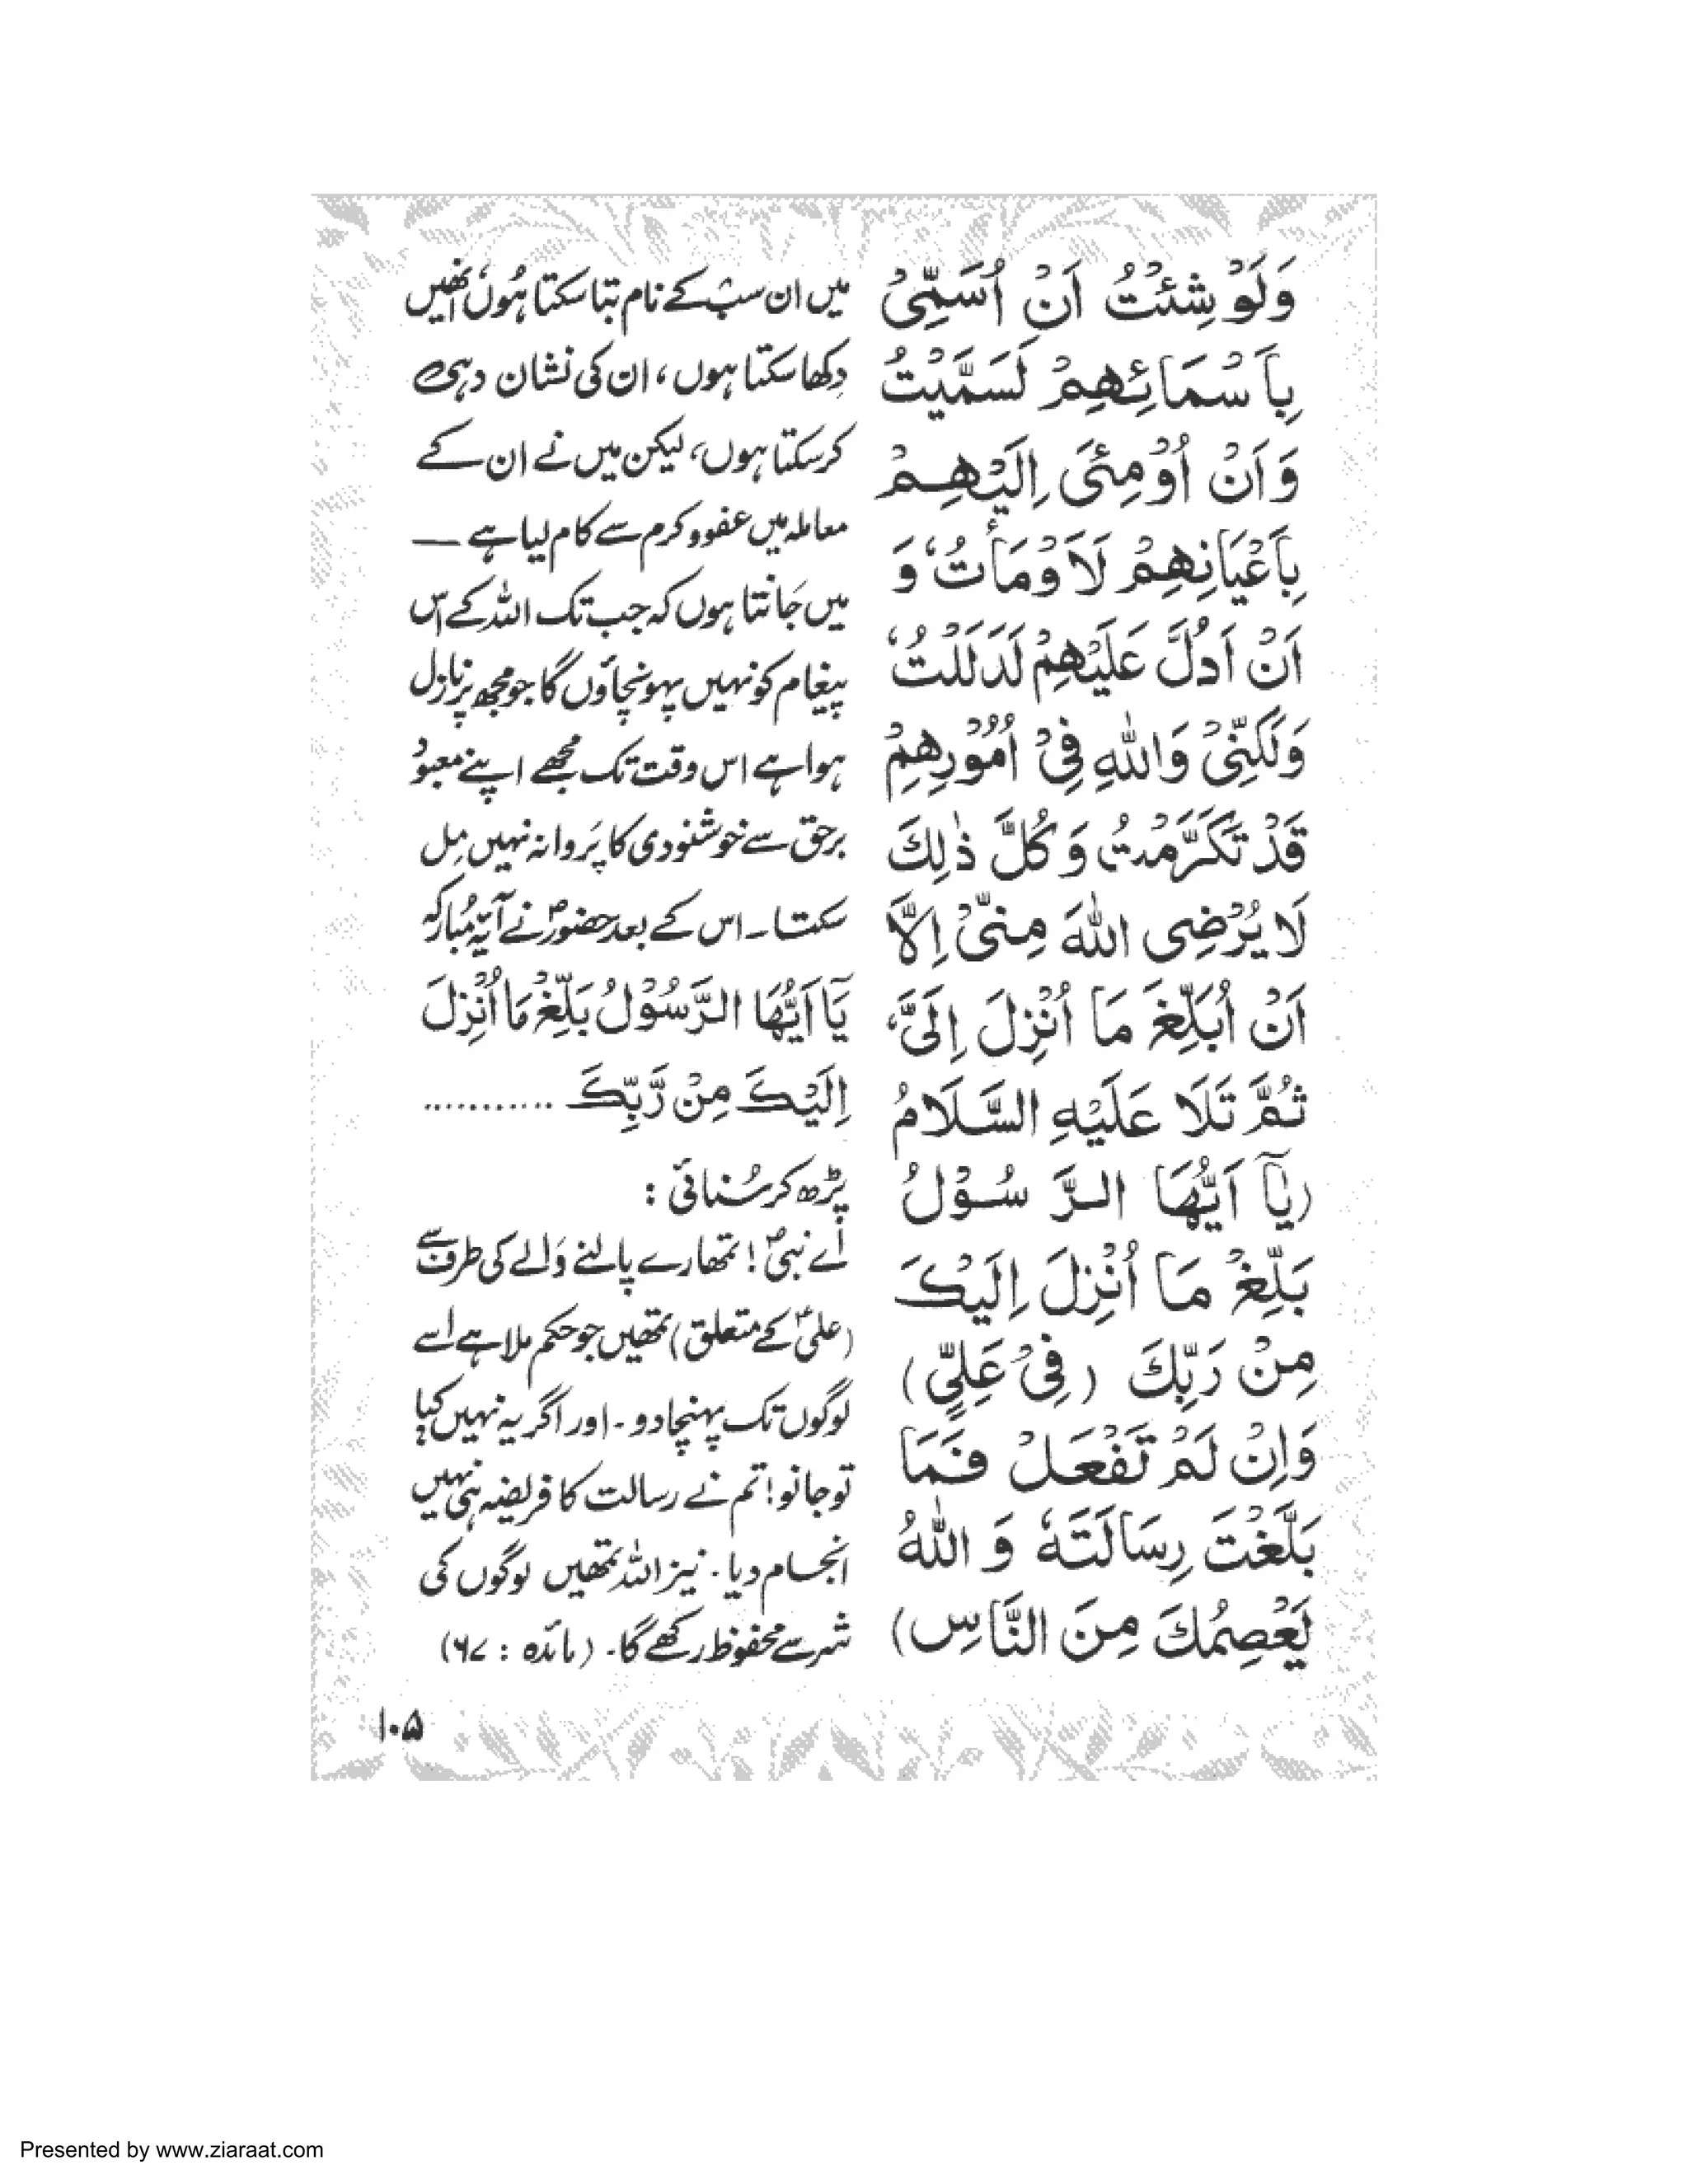 وَلَوْ شِئْتُ اَنْ اُسَمِّیْ
بِاَسْمَائِهِمْ لَسَمَّیْتُ
وَاَنْ اُوْمِئَ اِلَیْهِمْ
بِاَعْیَانِهِمْ لَاَوْمَأْتُ، وَ
اَنْ اَدُلَّ عَلَیْهِمْ لَدَلَلْتُ،
وَلٰکِنِّیْ وَاللهِ فِیْ اُمُوْرِهِمْ
قَدْ تَکَرَّمْتُ وَ کُلَّ ذٰلِكَ
لَا یُرْضِی اللهَ مِنِّیْ اِلَّا
اَنْ اُبَلِّغَ مَا اُنْزِلَ اِلَیَّ،
ثُمَّ تَلَا عَلَیْهِ السَّلَامُ
(یٰآ اَیُّهَا الرَّسُوْلُ
بَلِّغْ مَا اُنْزِلَ اِلَیْكَ
مِنْ رَبِّكَ (فِیْ عَلِیٍّ)
وَاِنْ لَمْ تَفْعَلْ فَمَا
بَلَّغْتَ رِسَالَتَهٗ وَ اللهُ
یَعْصِمُكَ مِنَ النَّاسِ)
میں ان سب کے نام بتا سکتا ہُوں، انھیں
دِکھا سکتا ہوں، ان کی نشان دہی
کرسکتا ہوں، لیکن میں نے ان کے
معاملہ میں عفو و کرم سے کام لیا ہے —
میں جَانتا ہوں کہ جب تک اللہ کے اس
پیغام کو نہیں پہونچاؤں گا جو مجھ پر نازل
ہوا ہے اس وقت تک مجھے اپنے معبودِ
برحق سے خوشنودی کا پَروانہ نہیں مِل
سکتا۔ اس کے بعد حضورؐ نے آیۂ مُبارکہ
یَآ اَیُّهَا الرَّسُوْلُ بَلِّغْ مَا اُنْزِلَ
اِلَیْكَ مِنْ رَّبِّكَ ...........
پڑھ کر سُنائی :
اَے نبیؐ! تمھارے پالنے وَالے کی طرف سے
(علیؑ کے متعلق) تمھیں جو حکم ملا ہے اسے
لوگوں تک پہنچا دو۔ اور اگر یہ نہیں کیا؛
تو جانو! تم نے رسالت کا فریضہ ہی نہیں
انجام دیا۔ نیز اللہ تمھیں لوگوں کی
شر سے محفوظ رکھے گا۔ (مائدہ : ۶۷)
۱۰۵
Presented by www.ziaraat.com